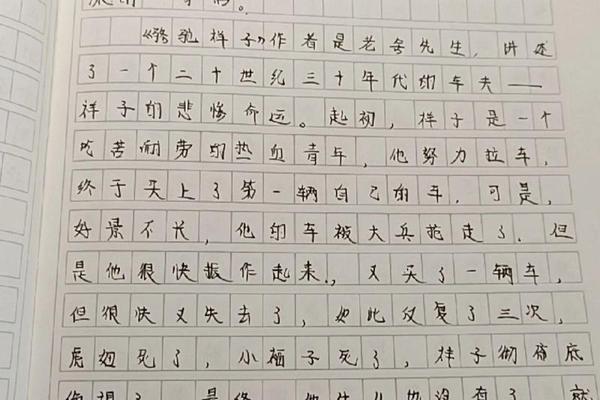 《骆驼样子》作者是老舍先生，讲述
了一个二十世纪三十年代的车夫——
祥子的悲惨命运。起初，样子是一个
吃苦耐劳的热血青年，他努力拉车，
终于买上了第一辆自己的车，可是，
好景不长，他的车被大兵抢走了．但
是他很快振作起来．，又买了一辆车，
但很快又失去了，如此反复了三次，
虎妞死了，小福子死了，样子彻夜底